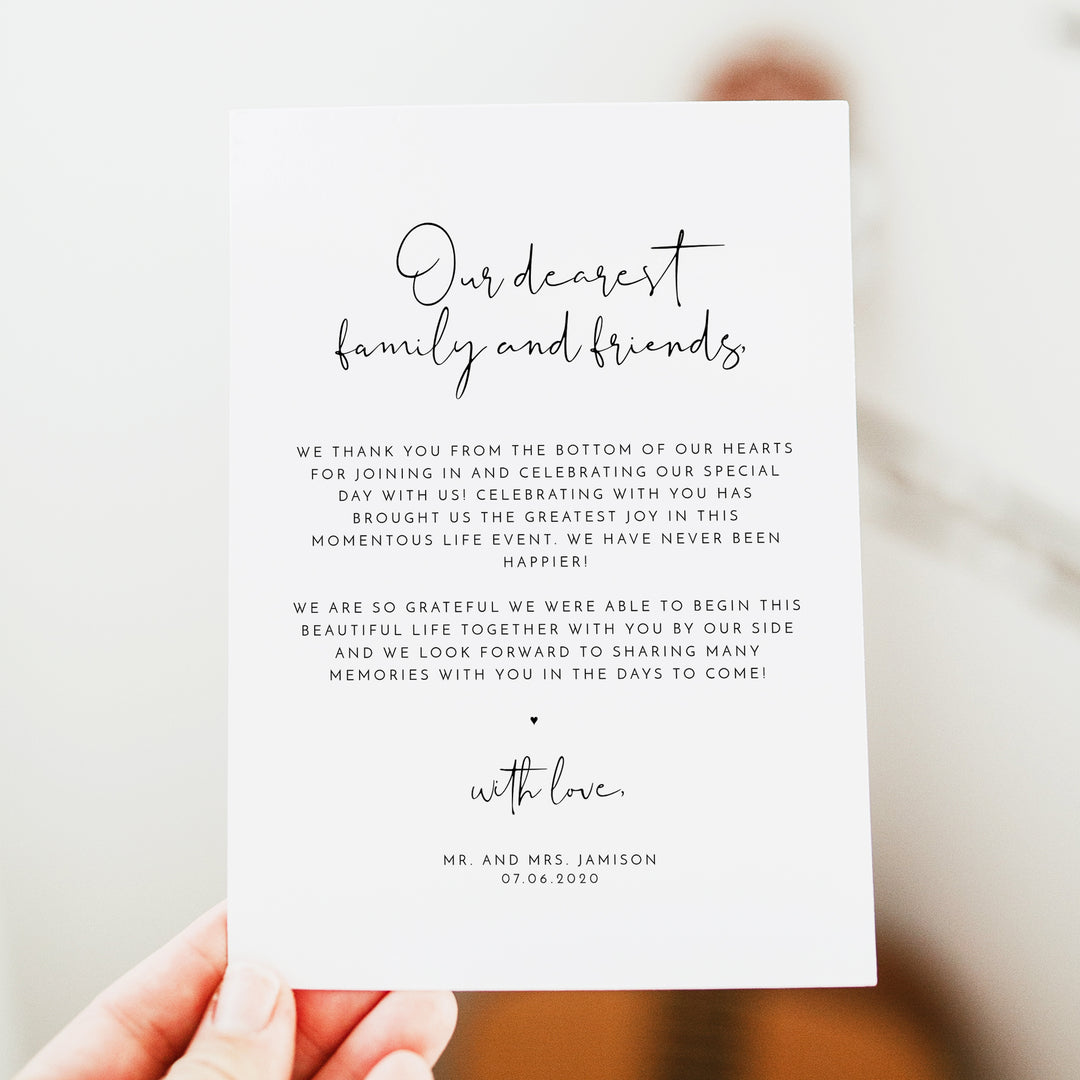 Our dearest
family and friends,
WE THANK YOU FROM THE BOTTOM OF OUR HEARTS
FOR JOINING IN AND CELEBRATING OUR SPECIAL
DAY WITH US! CELEBRATING WITH YOU HAS
BROUGHT US THE GREATEST JOY IN THIS
MOMENTOUS LIFE EVENT. WE HAVE NEVER BEEN
HAPPIER!
WE ARE SO GRATEFUL WE WERE ABLE TO BEGIN THIS
BEAUTIFUL LIFE TOGETHER WITH YOU BY OUR SIDE
AND WE LOOK FORWARD TO SHARING MANY
MEMORIES WITH YOU IN THE DAYS TO COME!
♥
with love,
MR. AND MRS. JAMISON
07.06.2020